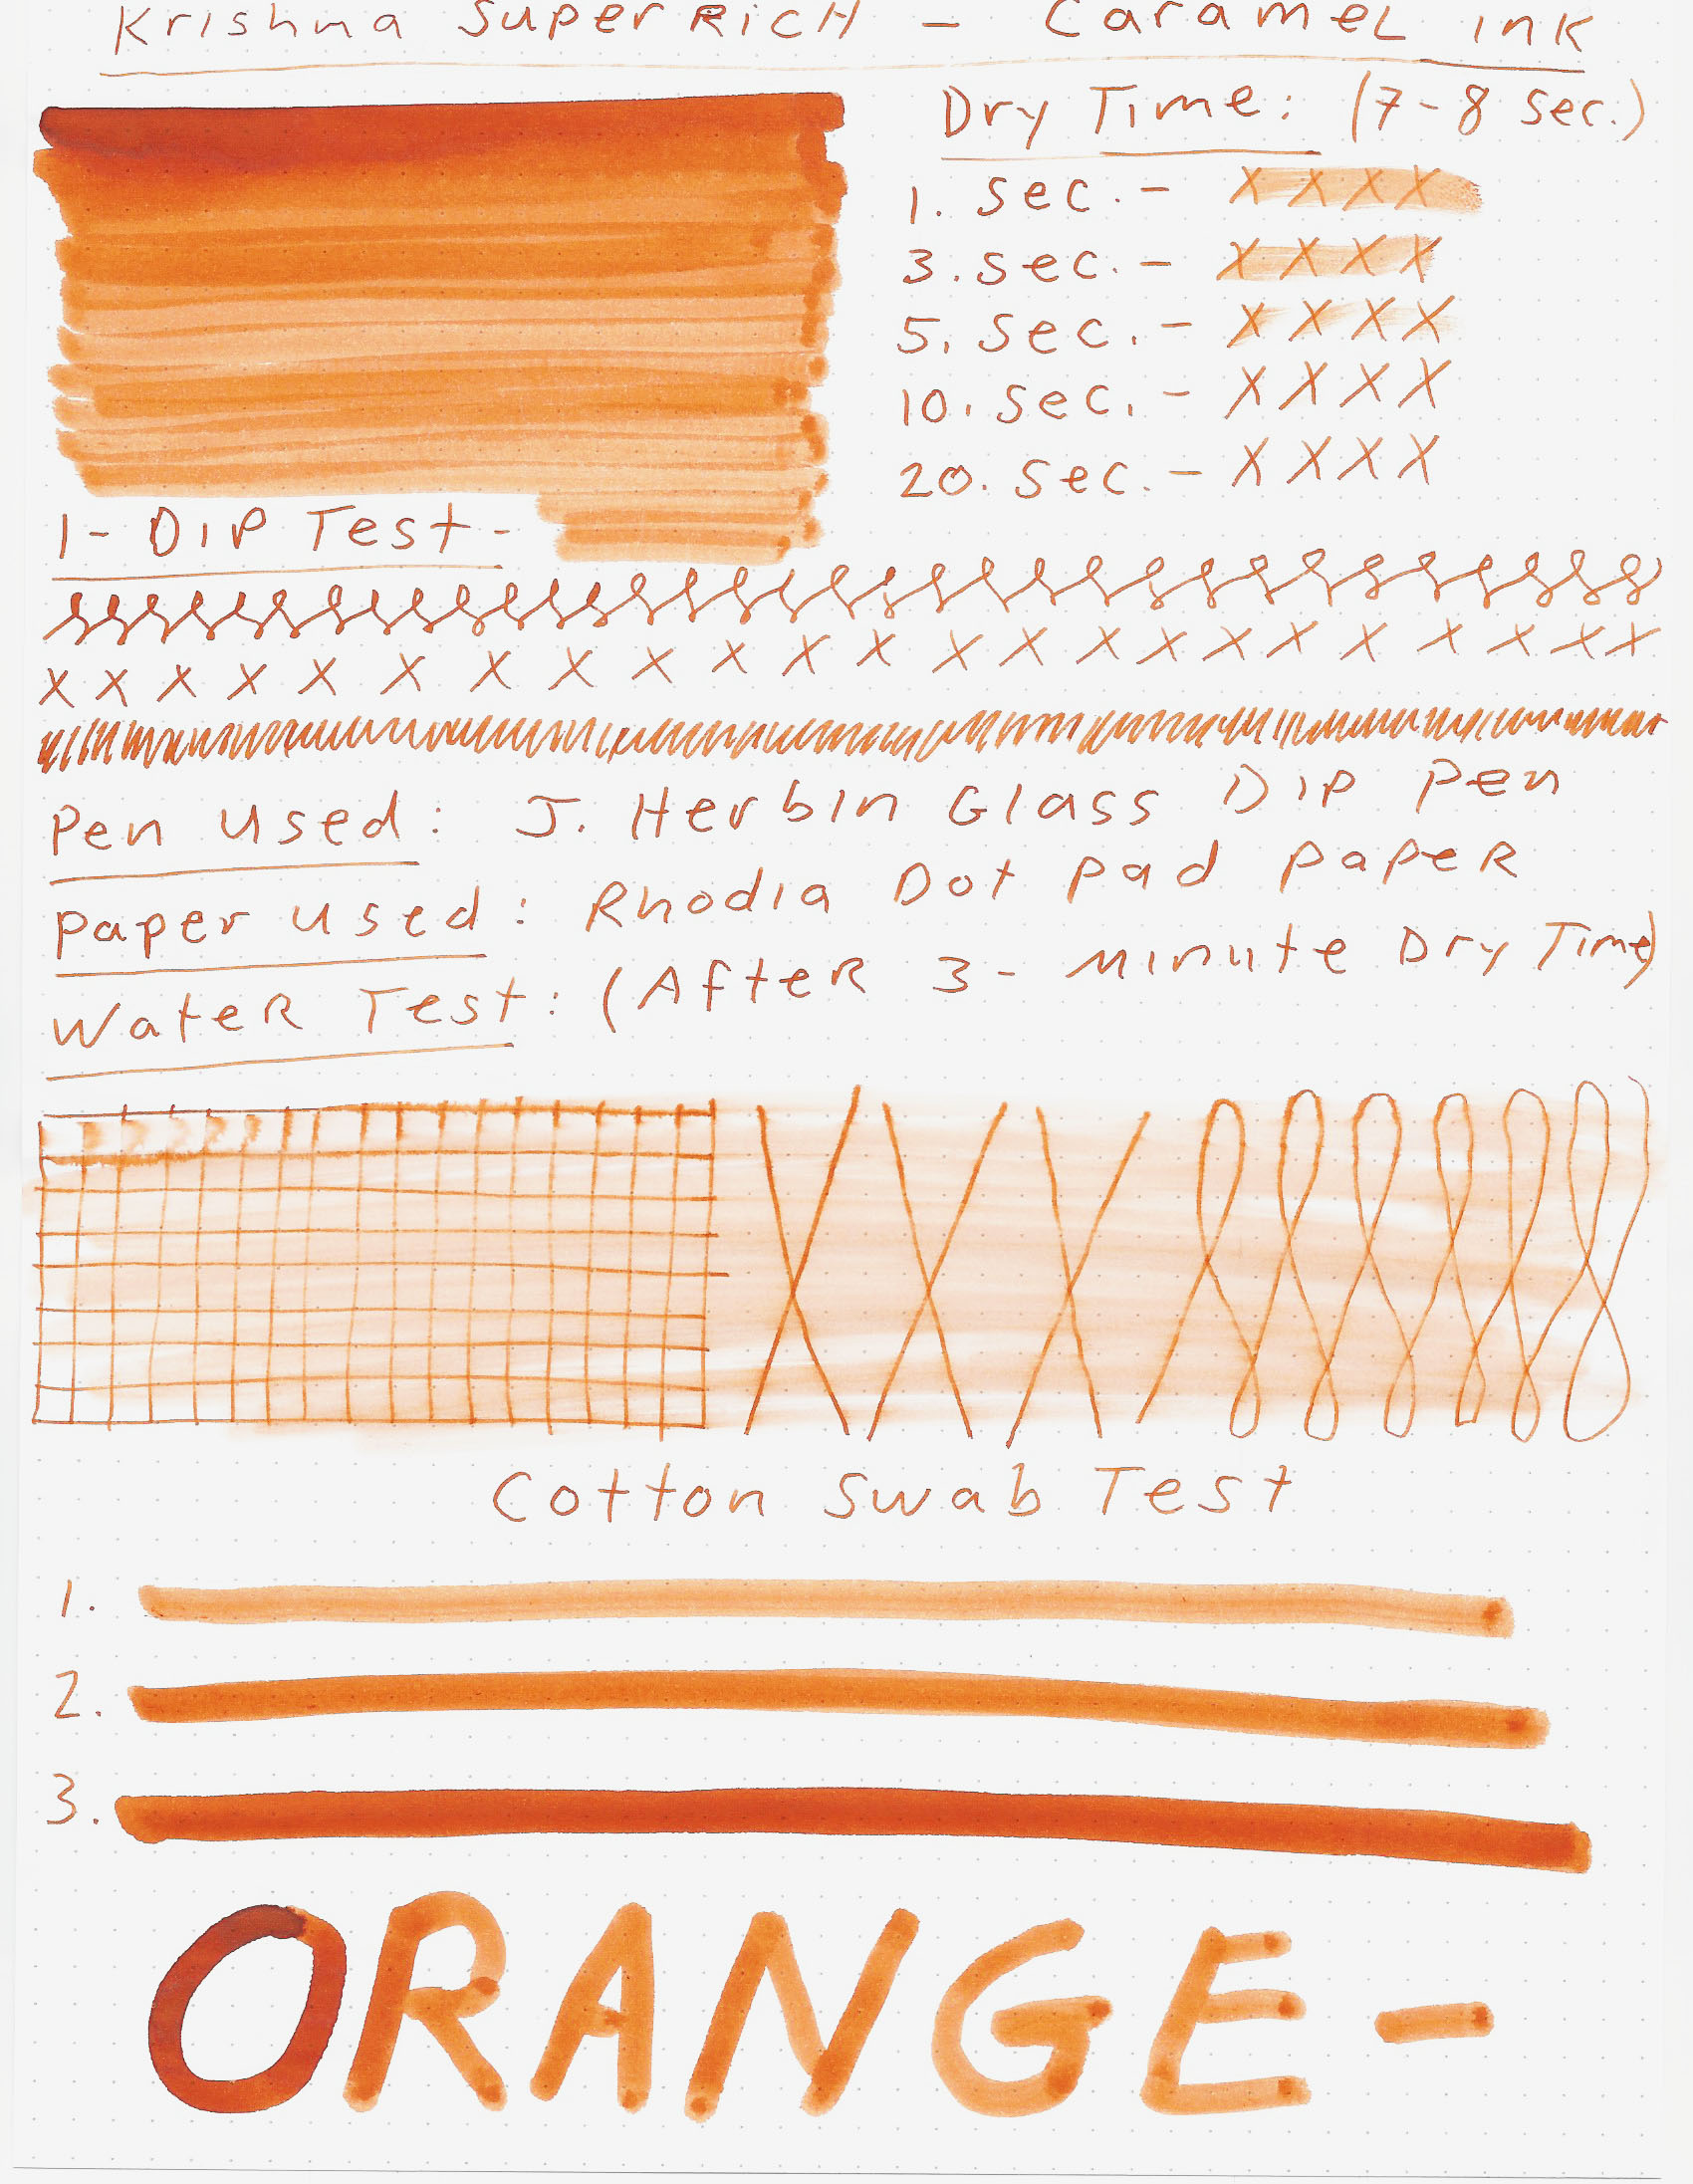 Krishna Super Rich - Caramel ink
Dry Time: (7-8 sec.)
1. sec. - X X X X
3. sec. - X X X X
5. sec. - X X X X
10. sec. - X X X X
20. sec. - X X X X
1- DIP Test -
X X X X X X X X X X X X X X X X X X X X X X X
Pen used: J. Herbin Glass Dip Pen
Paper used: Rhodia Dot Pad Paper
Water Test: (After 3- Minute Dry Time)
Cotton Swab Test
1.
2.
3.
ORANGE-